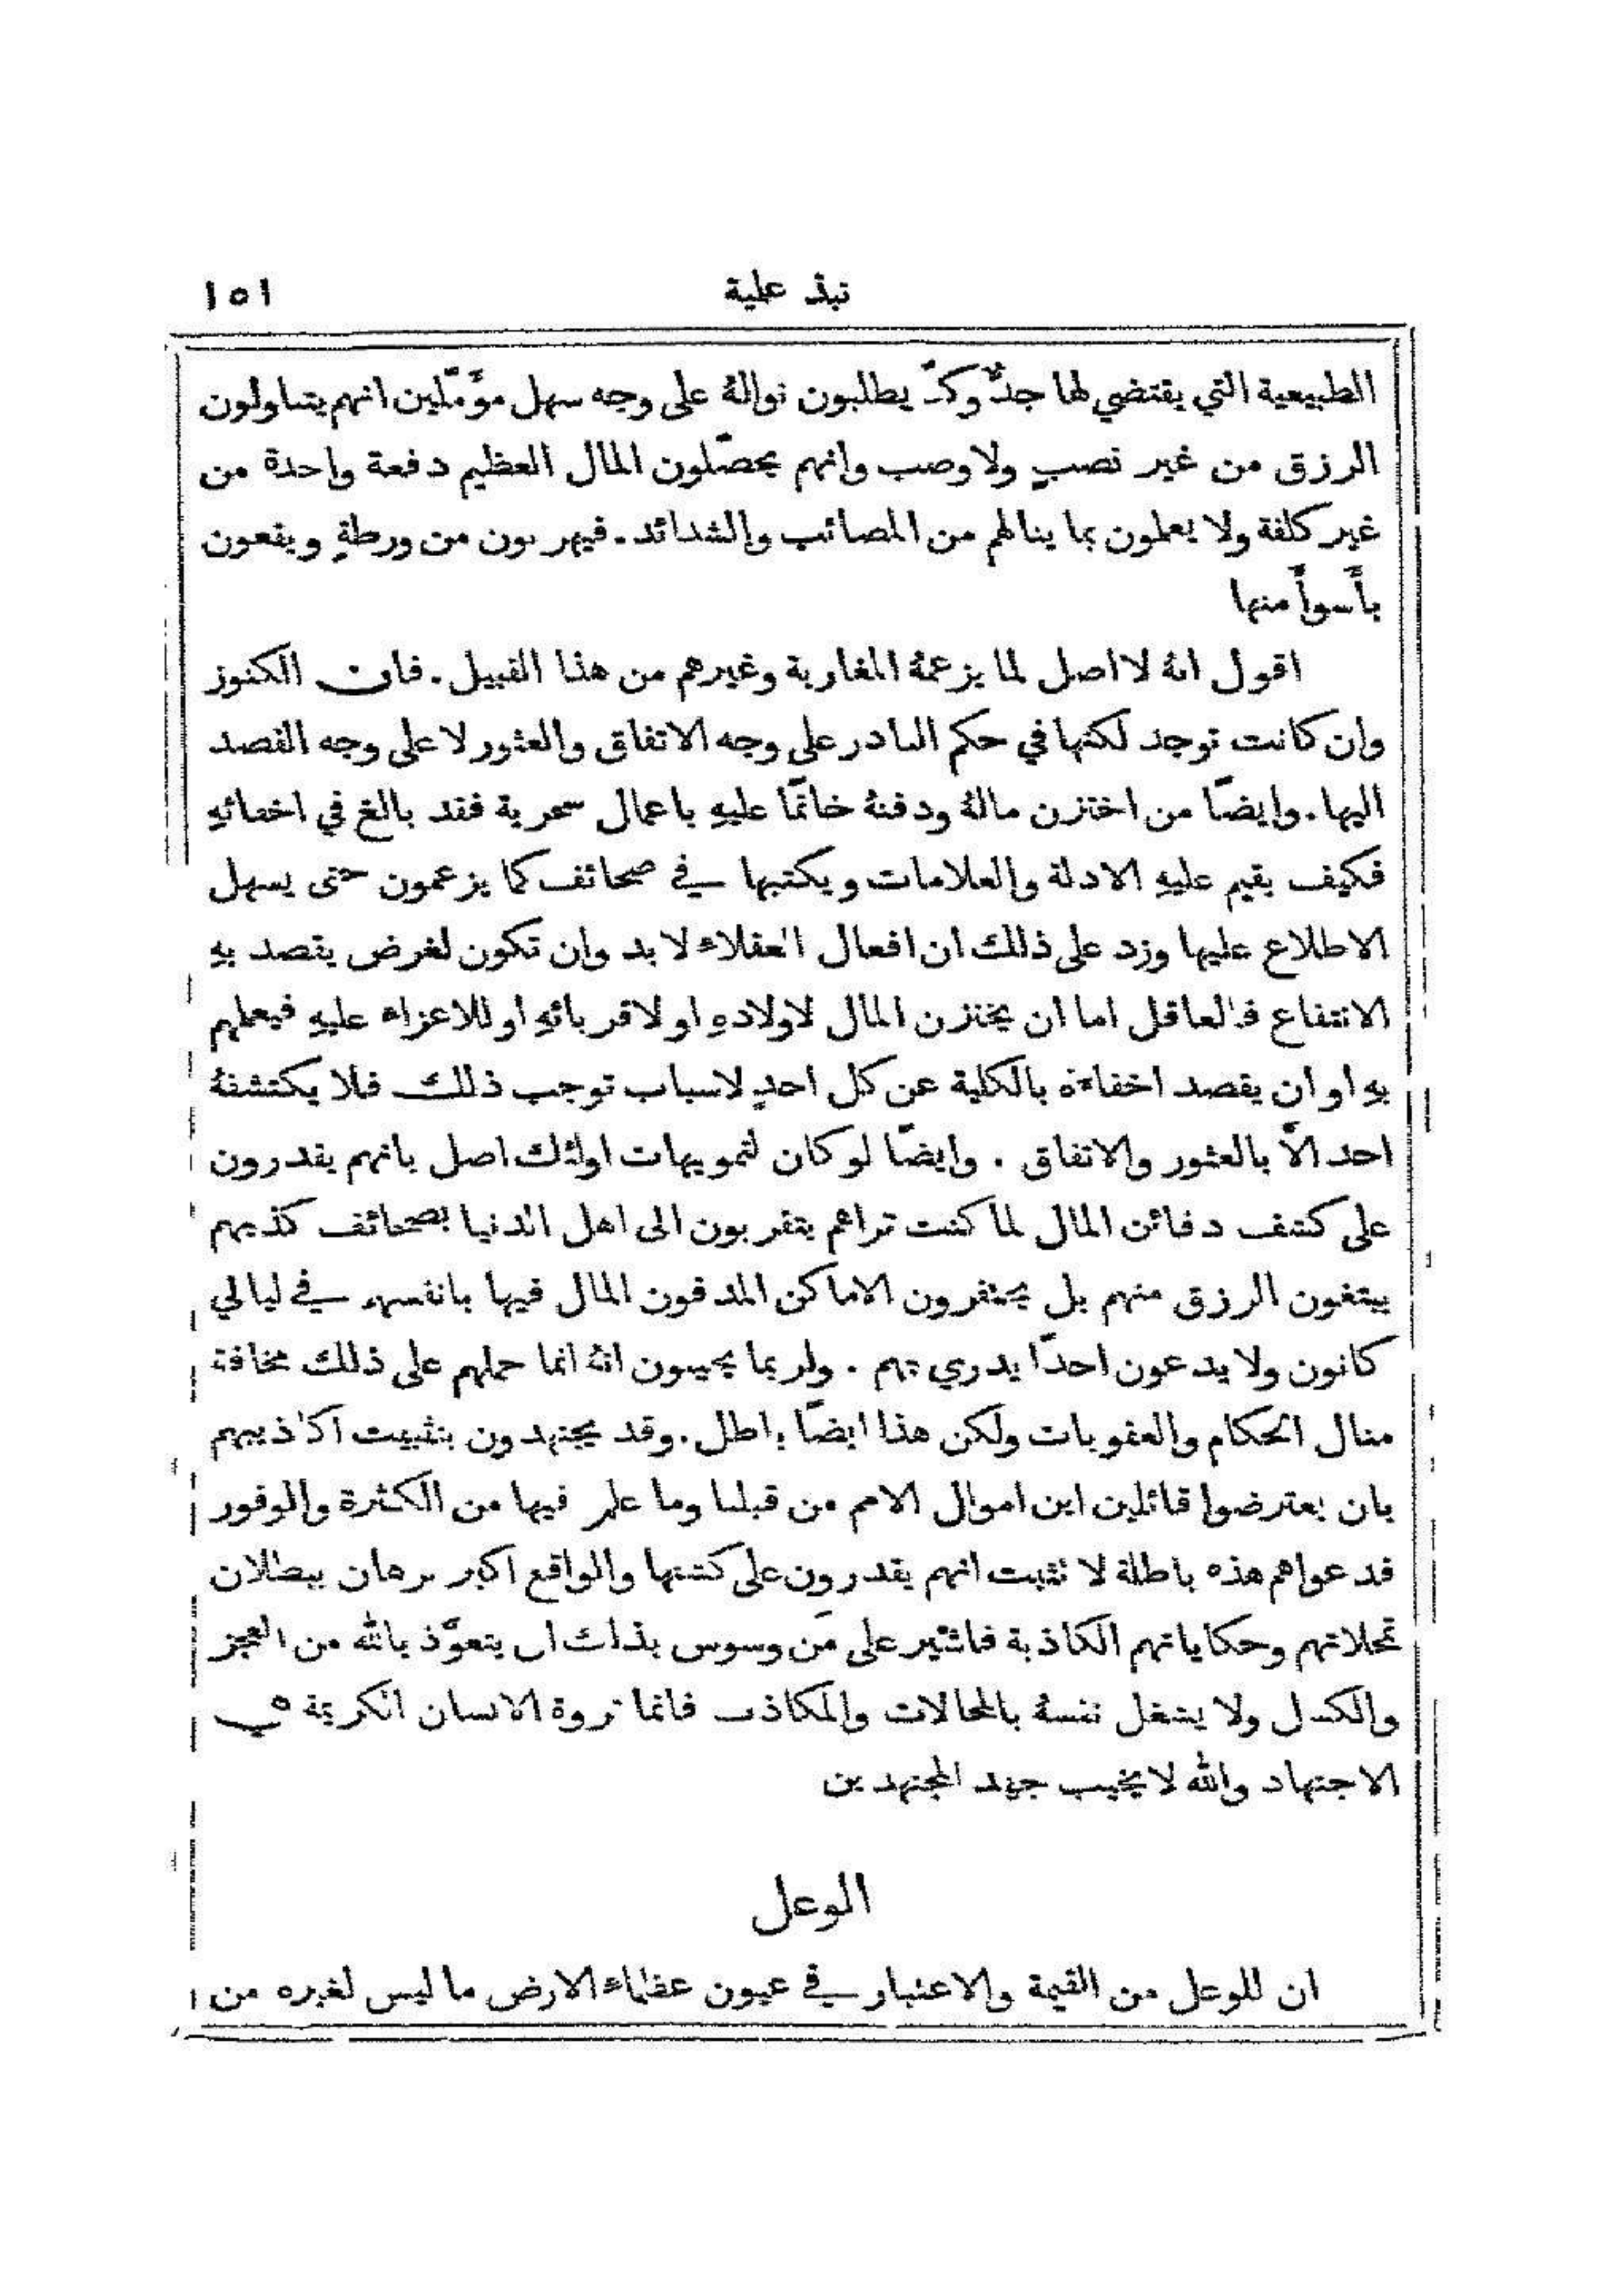 نبذ علمية ١٥١
الطبيعية التي يقتضي لها جدٌّ وكدّ يطلبون نوالهُ على وجه سهل مؤَمّلين انهم يتناولون
الرزق من غير نصبٍ ولا وصب وانهم يحصّلون المال العظيم دفعة واحدة من
غير كلفة ولا يعلمون بما ينالهم من المصائب والشدائد. فيهربون من ورطةٍ ويقعون
بأَسوأَ منها
اقول انهُ لا اصل لما يزعمهُ المغاربة وغيرهم من هذا القبيل. فان الكنوز
وان كانت توجد لكنها في حكم النادر على وجه الاتفاق والعثور لا على وجه القصد
اليها. وايضًا من اختزن مالهُ ودفنهُ خاتمًا عليهِ باعمال سحرية فقد بالغ في اخفائهِ
فكيف يقيم عليهِ الادلة والعلامات ويكتبها في صحائف كما يزعمون حتى يسهل
الاطلاع عليها وزد على ذلك ان افعال العقلاء لا بد وان تكون لغرض يقصد بهِ
الانتفاع فالعاقل اما ان يختزن المال لاولادهِ او لاقربائهِ او للاعزاء عليهِ فيعلمهم
بهِ او ان يقصد اخفاءهُ بالكلية عن كل احدٍ لاسباب توجب ذلك فلا يكتشفهُ
احد الاَّ بالعثور والاتفاق. وايضًا لو كان لتمويهات اولئك اصل بانهم يقدرون
على كشف دفائن المال لما كنت تراهم يتقربون الى اهل الدنيا بصحائف كذبهم
يبتغون الرزق منهم بل يحتفرون الاماكن المدفون المال فيها بانفسهم في ليالي
كانون ولا يدعون احدًا يدري بهم. ولربما يجيبون انهُ انما حملهم على ذلك مخافة
منال الحكام والعقوبات ولكن هذا ايضًا باطل. وقد يجتهدون بتثبيت اكاذيبهم
بان يعترضوا قائلين اين اموال الامم من قبلنا وما علم فيها من الكثرة والوفور
فدعواهم هذه باطلة لا تثبت انهم يقدرون على كشفها والواقع اكبر برهان ببطلان
تمحلاتهم وحكاياتهم الكاذبة فانثير على مَن وسوس بذلك ان يتعوَّذ بالله من العجز
والكسل ولا يشغل نفسهُ بالمحالات والمكاذب فانما ثروة الانسان الكريمة في
الاجتهاد والله لا يخيب جهد المجتهدين
الوعل
ان للوعل من القيمة والاعتبار في عيون عظماء الارض ما ليس لغيره من